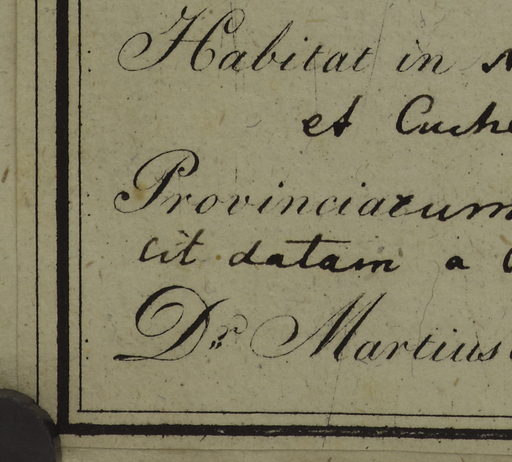 Habitat in
et
Provinciarum
cit datam a
Dr. Martius